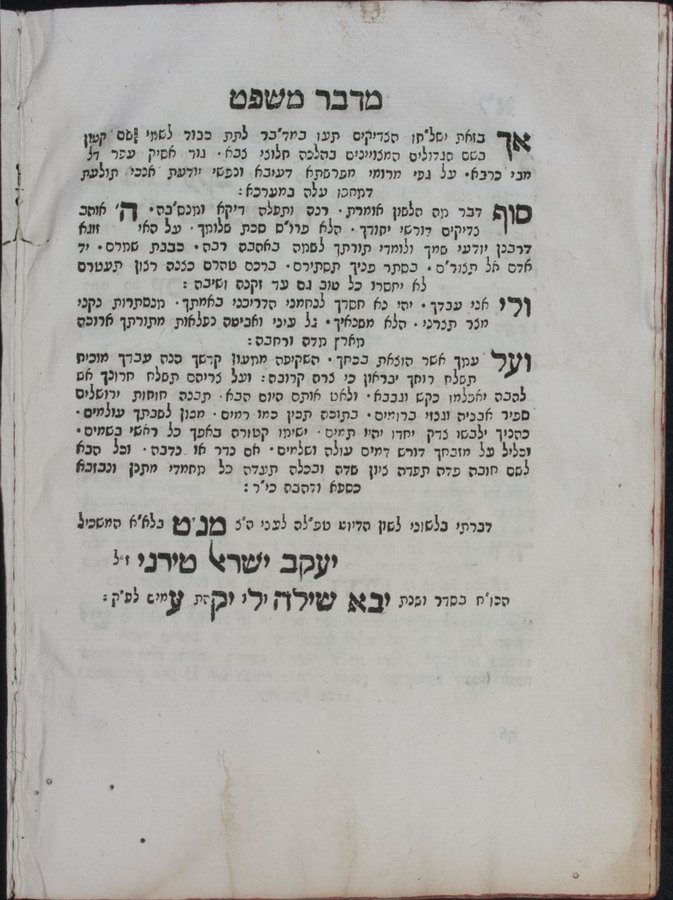 מדבר משפט
אך בזאת ישל״חו הצדיקים תעו במד״בר לתת כבוד לשמי
בשם הגדולים המצויינים בהלכה חלוצי צבא· גור אשיק עפר דל
מבי כרבא· על גפי מרומי מפרשתא דעיבא ונפשי יודעת אנכי תולעת
דמתכן עלה במערכא:
סוף דבר מה הלשון אומרת· רנה ותפלה דיקא ומנס״בה· ה׳ אוהב
צדיקים דורשי יחודך· הלא פרו״ס סכת שלומך· על האי זוגא
דרבנן יודעי שמך ולומדי תורתך לשמה באהבה רבה· כבבת שמרם· יד
אדם אל תצור״ם· בסתר פניך תסתירם· ברכם טהרם כצנה רצון תעטרם
לא יחסרו כל טוב גם עד זקנה ושיבה:
ורי אני עבדך· יהי נא חסדך לנחמני הדריכני באמתך· מנסתרות נקני
מצר תצרני· הלא משנאיך· גל עיני ואביטה נפלאות מתורתך ארוכה
מארץ מדה ורחבה:
ועל עמך אשר הוצאת בכחך· השקיפה ממעון קדשך הנה עבדך מוכיח
תשלח רוחך יבראון כי צרה קרובה: ועל צריהם תשלח חרונך אש
להבה יאכלמו כקש ונגבא· ולאט אותם היום הבא· תבנה חומות ירושלים
ספיר אבניה ונבזי ברומים· בתוכה תכין כמו רמים· מכון לשבתך עולמים·
כהניך ילבשו צדק יחדו יהיו תמים· ישימו קטורה באפך כל ראשי בשמים·
וכליל על מזבחך דורש דמים עולה ושלמים· אם נדר או נדבה· וכל הבא
לשם חובה פדה תפדה ציון שדה ובכלה תעדה כל מחמדי מתנן ונבזבא
כספא ודהבה כי״ר:
דברתי בלשוני לשון הדיוט טפ״לה לפני ה״צ מנ״ט בלא״א המשכיל
יעקב ישראל טירני ז״ל
הכו״ח בסדר ושנת יבא שילה ולי יקהת עמים לפ״ק: